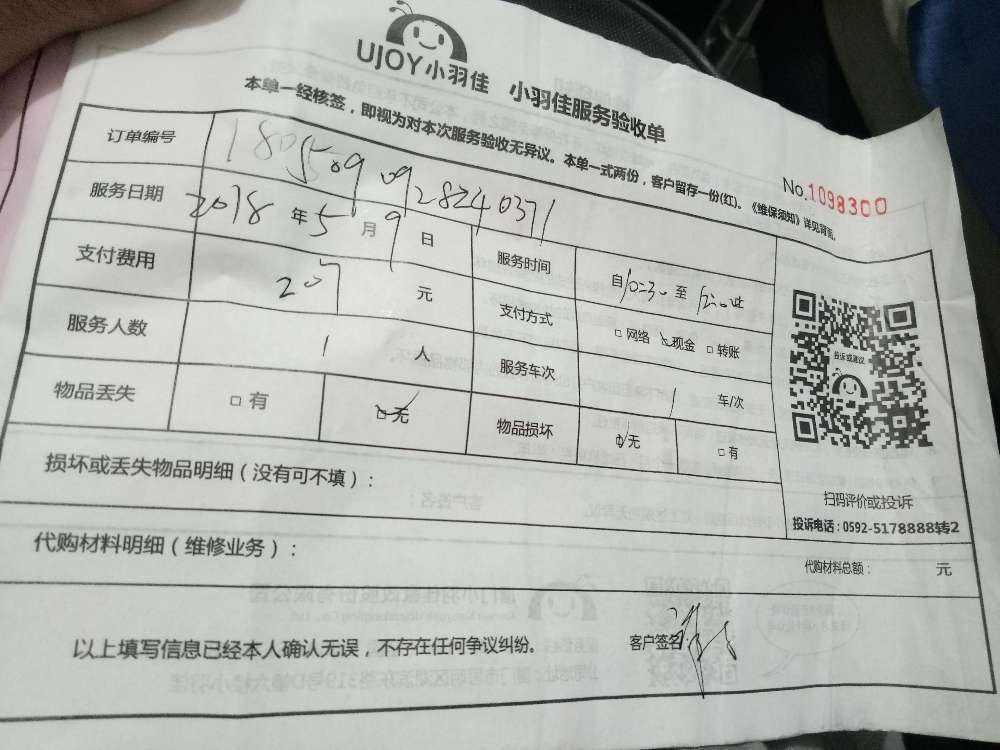 UJOY小羽佳 小羽佳服务验收单
本单一经核签，即视为对本次服务验收无异议。本单一式两份，客户留存一份(红)。《维保须知》详见背面。
No.1098300
订单编号 1805090928240371
服务日期 2018年5月9日 服务时间 自10:30至
支付费用 元 支付方式 □网络 现金 □转账
服务人数 1人 服务车次 1 车/次
物品丢失 □有 □无 物品损坏 □无 □有
投诉或建议
损坏或丢失物品明细（没有可不填）：
扫码评价或投诉
投诉电话：0592-5178888转2
代购材料明细（维修业务）：
代购材料总额： 元
以上填写信息已经本人确认无误，不存在任何争议纠纷。
客户签名：